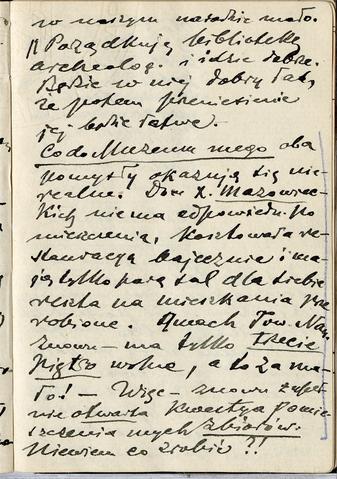 w naszym narodzie mało.
Porządkuję bibliotekę
archeolog. i idzie dobrze.
Będzie w niej dobry ład,
że potem przeniesienie
jej będzie łatwe.
Co do Muzeum mego oba
pomysły okazują się nie-
realne. Dom X. Mazowiec-
kich nie ma odpowiedn. po
mieszczenia, kosztowała re-
stauracya bajecznie i ma-
ją tylko parę sal dla siebie
reszta na mieszkania prze
robione. Gmach Tow. Nau.
znowu – ma tylko trzecie
piętro wolne, a to za ma-
ło! – Więc – znowu zupeł-
nie otwarta kwestya pomie-
szczenia mych zbiorów.
Niewiem co zrobić?!